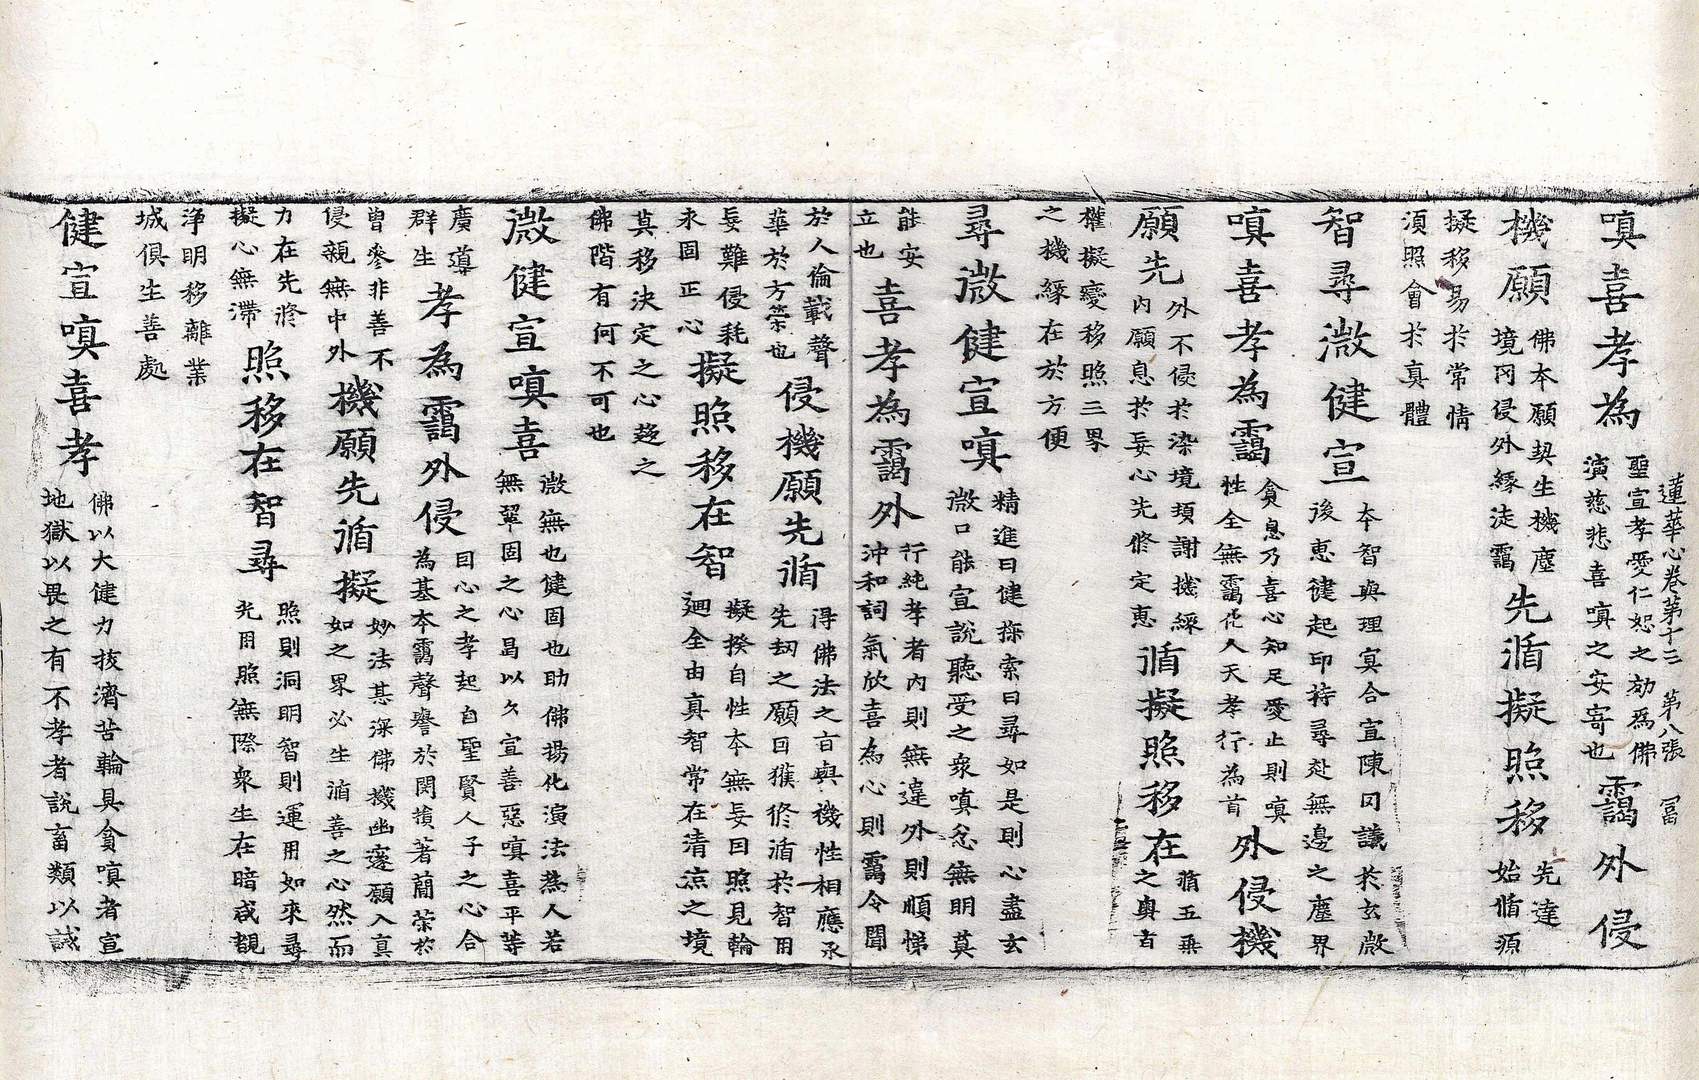 蓮華心卷第十三 第八張 冨
嗔喜孝為
聖宣孝愛仁恕之劾為佛
演慈悲喜嗔之安寄也
靄外侵
機願
佛本願契生機塵
境冈侵外緣迬靄
先循擬照移
先達
始循源
擬移易於常情
湏照會於真體
智尋微健宣
本智與理㝠合宣陳同議於玄微
後惠健起印持尋赴無邊之塵界
嗔喜孝為靄
貪息乃喜心知足愛止則嗔
性全無靄化人天孝行為首
外侵機
願先
外不侵於染境頓謝攀緣
内願息於妄心先修定惠
循擬照移在
循五乗
之奥旨
權擬變移照三界
之機緣在於方便
尋微健宣嗔
精進曰健探索曰尋如是則心盡玄
微口能宣說聽受之衆嗔忿無明莫
能安
立也
喜孝為靄外
行純孝者内則無違外則順悌
沖和詞氣欣喜為心則靄令聞
於人倫載聲
華於方榮也
侵機願先循
得佛法之旨與機性相應承
先刼之願曰獲修循於智用
妄難侵耗
永固正心
擬照移在智
擬揆自性本無妄曰照見輪
廻全由真智常在清涼之境
莫移決定之心趍之
佛階有何不可也
微健宣嗔喜
微無也健固也助佛揚化演法為人若
無鞏固之心曷以久宣善惡嗔喜平等
廣導
群生
孝為靄外侵
因心之孝起自聖賢人子之心合
為基本靄聲譽於閔損著蕑荣於
曽參非善不
侵親無中外
機願先循擬
妙法甚深佛機幽邃願入真
如之界必生循善之心然而
力在先修
擬心無滯
照移在智尋
照則洞明智則運用如來尋
光用照無際衆生在暗咸覩
淨明移離業
城俱生善處
健宣嗔喜孝
佛以大健力拔濟苦輪具貪嗔者宣
地獄以畏之有不孝者說畜類以誡